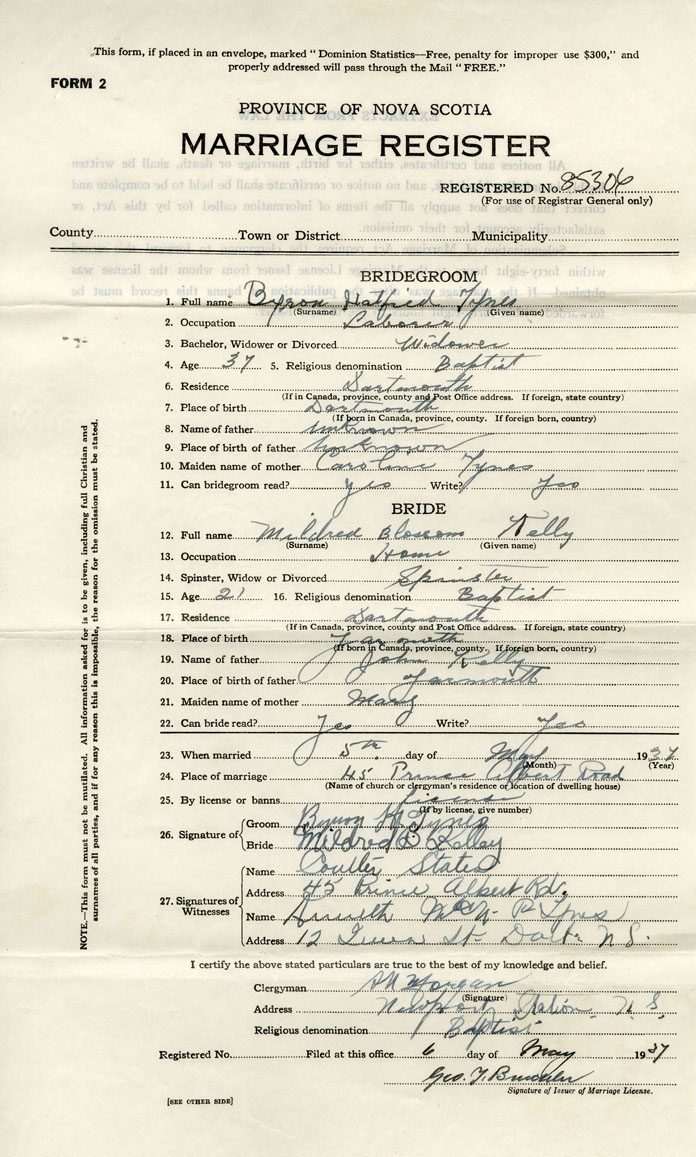 This form, if placed in an envelope, marked "Dominion Statistics—Free, penalty for improper use $300," and
properly addressed will pass through the Mail "FREE."
FORM 2
PROVINCE OF NOVA SCOTIA
MARRIAGE REGISTER
REGISTERED No. 85306
(For use of Registrar General only)
County Town or District Municipality
BRIDEGROOM
1. Full name Byron Hatfield Tynes
(Surname) (Given name)
2. Occupation Laborer
3. Bachelor, Widower or Divorced Widower
4. Age 37 5. Religious denomination Baptist
6. Residence Dartmouth
(If in Canada, province, county and Post Office address. If foreign, state country)
7. Place of birth Dartmouth
(If born in Canada, province, county. If foreign born, country)
8. Name of father Unknown
9. Place of birth of father Unknown
10. Maiden name of mother Caroline Tynes
11. Can bridegroom read? Yes Write? Yes
BRIDE
12. Full name Mildred Blossom Kelly
(Surname) (Given name)
13. Occupation Home
14. Spinster, Widow or Divorced Spinster
15. Age 21 16. Religious denomination Baptist
17. Residence Dartmouth
(If in Canada, province, county and Post Office address. If foreign, state country)
18. Place of birth Yarmouth
(If born in Canada, province, county. If foreign born, country)
19. Name of father John Kelly
20. Place of birth of father Yarmouth
21. Maiden name of mother Mary
22. Can bride read? Yes Write? Yes
23. When married 5th day of May 1937
(Month) (Year)
24. Place of marriage 45 Prince Albert Road
(Name of church or clergyman's residence or location of dwelling house)
25. By license or banns license
(If by license, give number)
26. Signature of Groom Byron H. Tynes
Bride Mildred B Kelley
27. Signatures of Witnesses
Name Coulter States
Address 45 Prince Albert Rd.
Name Tynes
Address 12 St. Dart. N.S.
I certify the above stated particulars are true to the best of my knowledge and belief.
Clergyman Morgan
(Signature)
Address Newport Station N.S.
Religious denomination Baptist
Registered No. Filed at this office 6 day of May 1937
Geo. T.
Signature of Issuer of Marriage License.
[SEE OTHER SIDE]
NOTE.—This form must not be mutilated. All information asked for is to be given, including full Christian and
surnames of all parties, and if for any reason this is impossible, the reason for the omission must be stated.